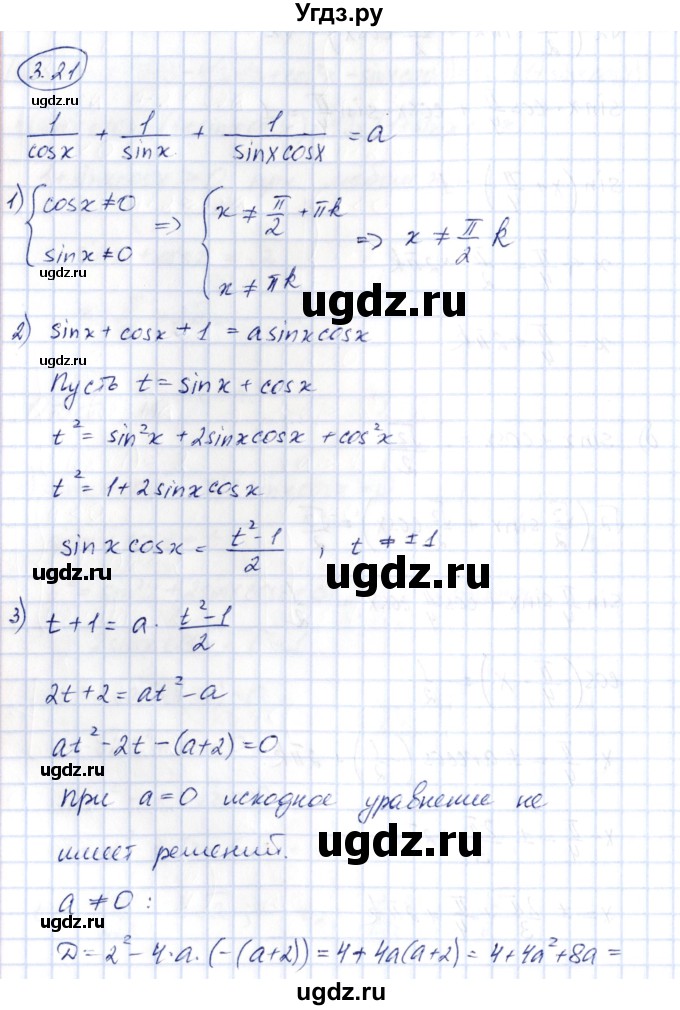 Угдз.ру
3.21
ugdz.ru
1/cosx + 1/sinx + 1/(sinxcosx) = a
1) { cosx ≠ 0 ; sinx ≠ 0 => { x ≠ π/2 + πk ; x ≠ πk => x ≠ π/2 k
ugdz.ru
ugdz.ru
2) sinx + cosx + 1 = a sinxcosx
Пусть t = sinx + cosx
ugdz.ru
t² = sin²x + 2sinxcosx + cos²x
t² = 1 + 2sinxcosx
sinxcosx = (t²-1)/2 , t ≠ ±1
ugdz.ru
ugdz.ru
3) t + 1 = a · (t²-1)/2
2t + 2 = at² - a
at² - 2t - (a+2) = 0
ugdz.ru
При a = 0 исходное уравнение не
имеет решений.
ugdz.ru
a ≠ 0 :
D = 2² - 4·a·(-(a+2)) = 4 + 4a(a+2) = 4 + 4a² + 8a =
ugdz.ru
ugdz.ru